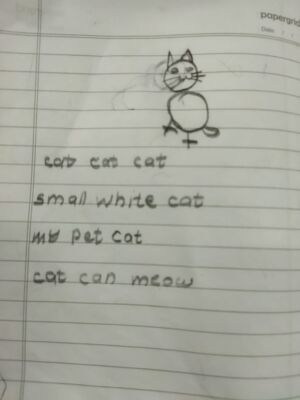 papergrid
Date: / /
cat cat cat
small white cat
my pet cat
cat can meow